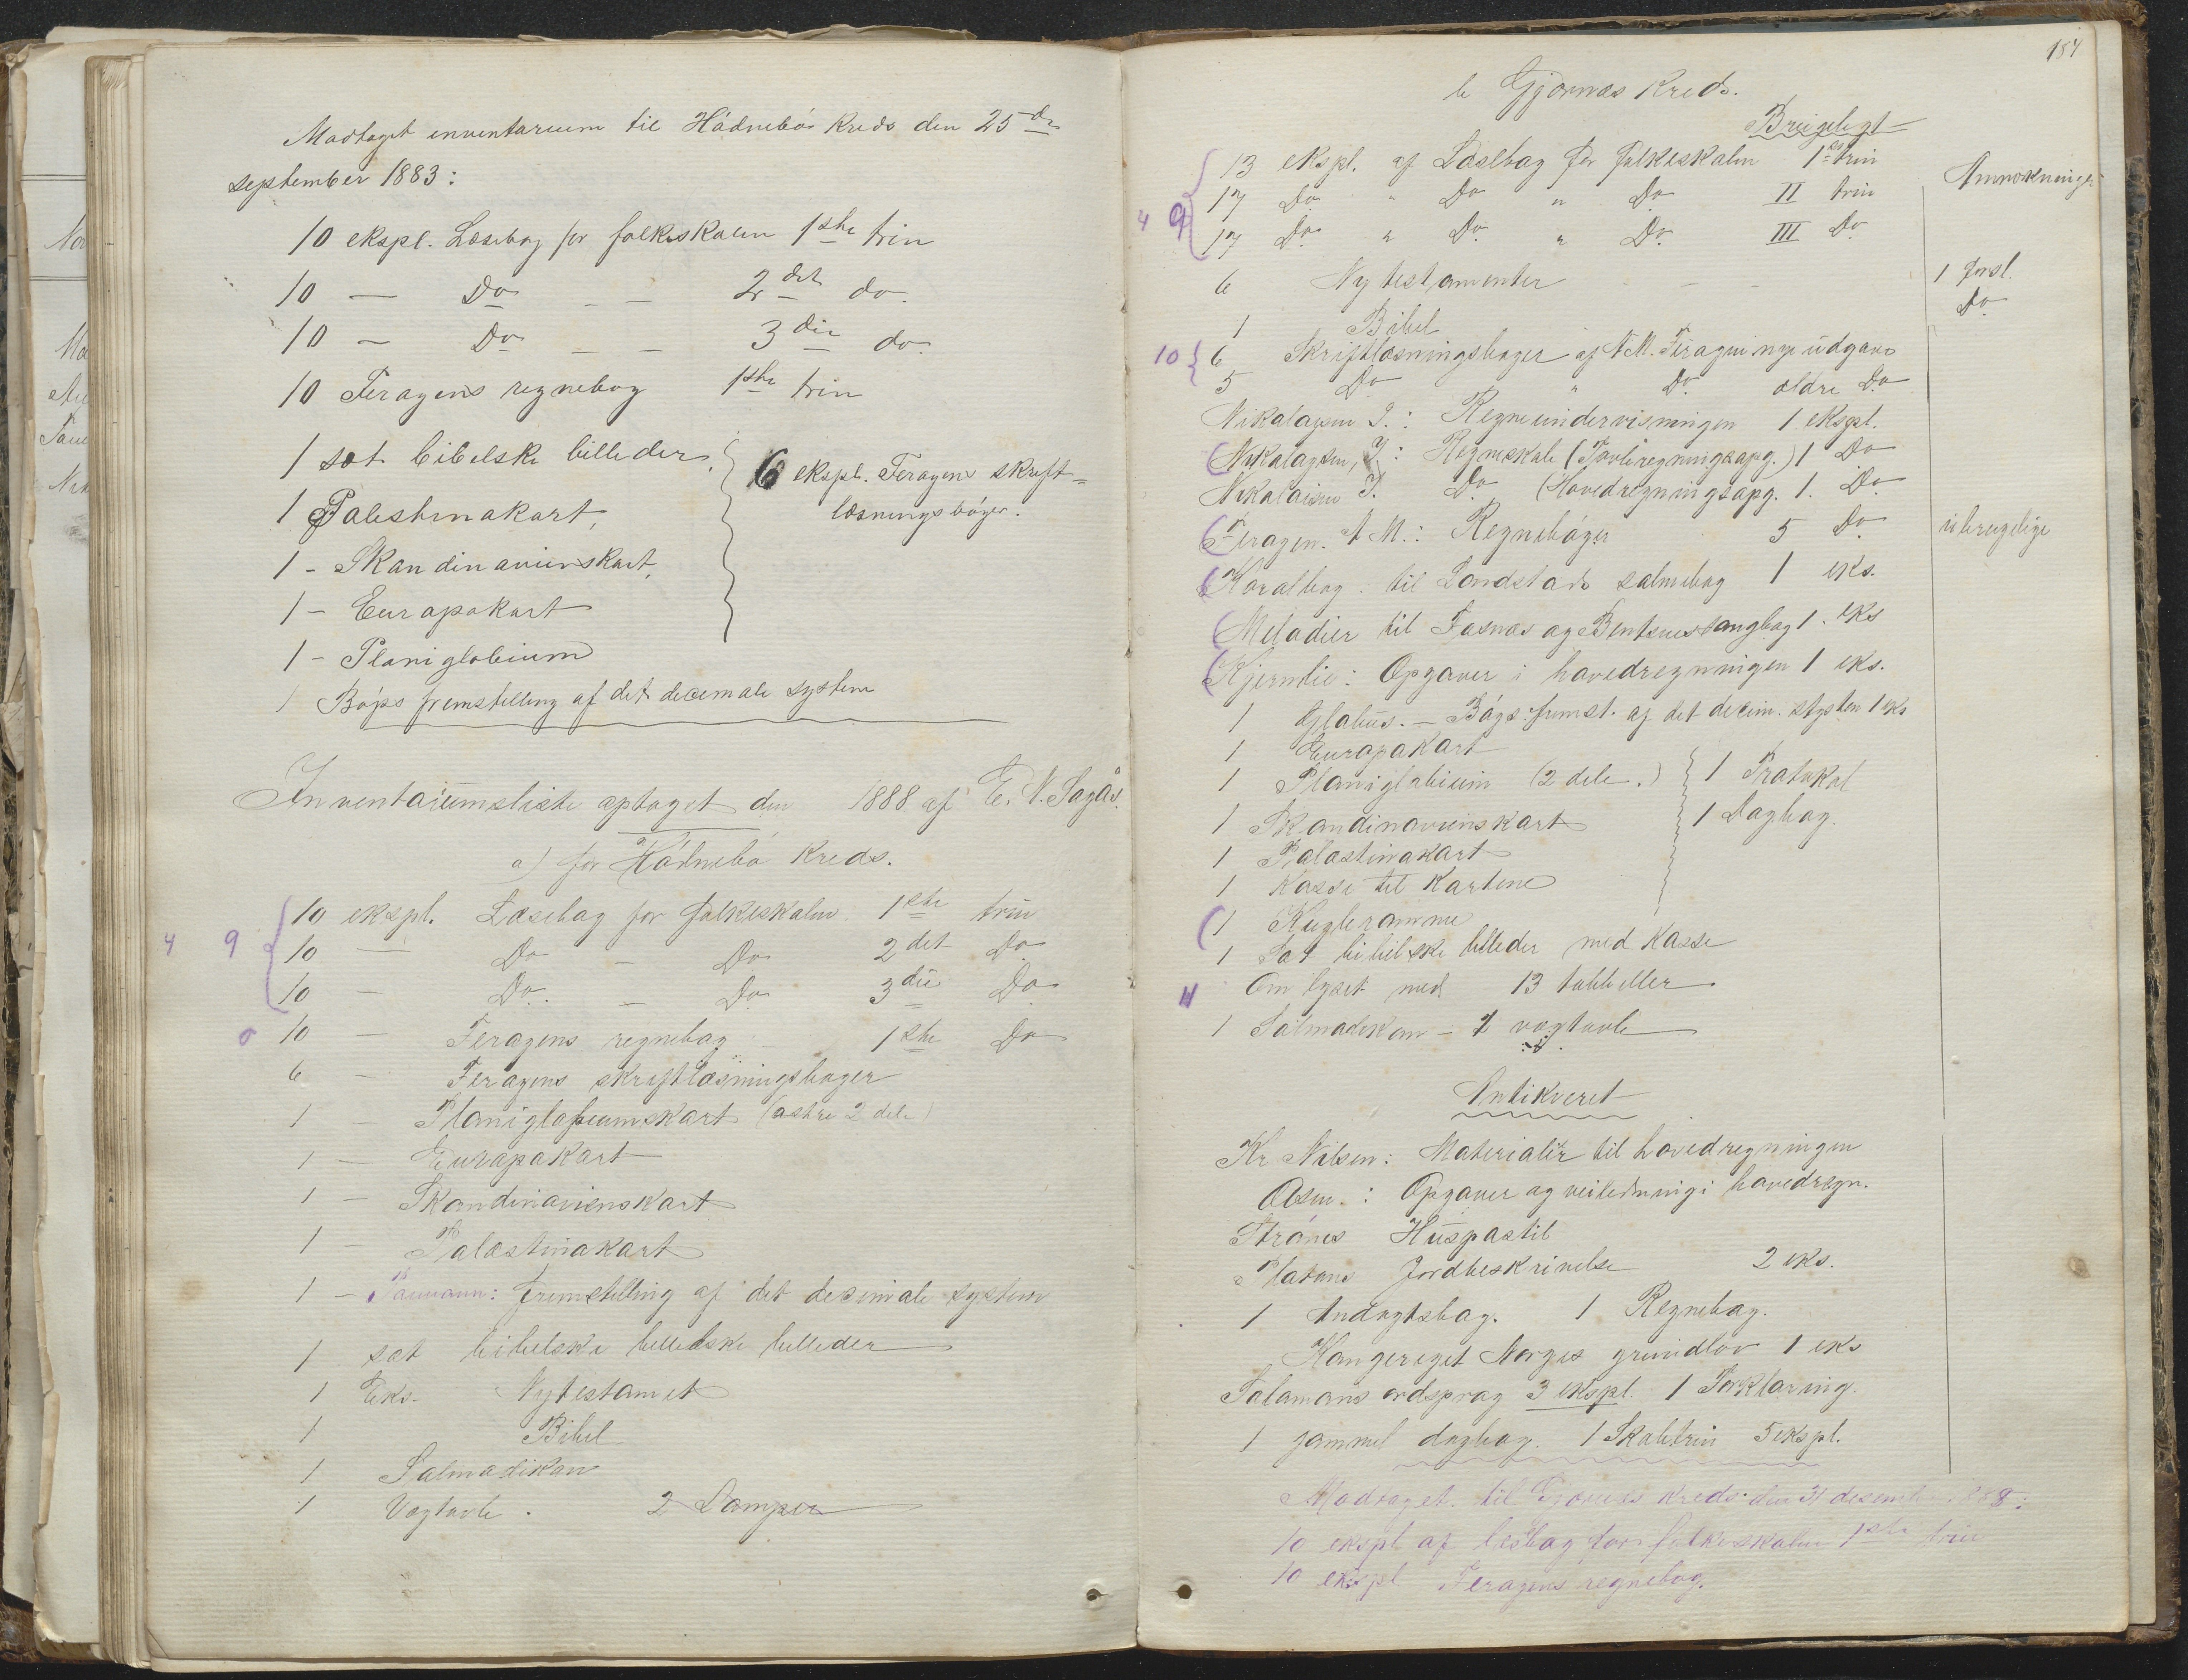 Modtaget inventarium til Hådnebø Kreds den 25de
september 1883:
10 ekspl. Læsebog for folkeskolen 1ste trin
10 — Do — — 2det do.
10 — Do — — 3die do.
10 Feragens regnebog 1ste trin
1 sæt bibelske billeder,
1 Palestinakart,
1 - Skandinavienskart,
1 - Europakart
1 - Planiglobium
6 ekspl. Feragens skrift-
læsningsbøger.
1 Bøps fremstilling af det decimale system
Inventariumsliste optaget den 1888 af E. N. Sagås.
a) for Hådnebø Kreds.
4 9
10 ekspl. Læsebog for folkeskolen 1ste trin
10 — Do — Do 2det Do
10 — Do. — Do 3die Do
0 10 — Feragens regnebog — 1ste Do
6 — Feragens skriftlæsningsbøger
1 — Planiglobiumskart (østre 2 dele)
1 — Europakart
1 — Skandinavienskart
1 — Palæstinakart
1 — fremstilling af det desimale system
1 sæt bibelske billedske billeder
1 Eks. Nytestamet
1 Bibel
1 Salmodikon
1 Vægtavle. 2 Lamper
184
b Gjørnæs Kreds.
Brugeligt
Anmærkninger
4 9
13 ekspl. af Læsebog for folkeskolen 1ste trin
17 Do " Do " Do II trin
17 Do " Do " Do III Do
6 Nytestamenter — — 1 forsl.
1 Bibel Do
10
6 Skriftlæsningsbøger af A.M. Feragen nye udgave
5 Do " Do ældre Do
Nikolaysen J.: Regneundervisningen 1 ekspl.
Nikolaysen, J.: Regneskole (Tavleregningsopg.) 1 Do
Nikolaisen J. Do (Hovedregningsopg. 1. Do
Feragen. A M.: Regnebøger 5 Do ubrugelige
Koralbog til Landstads salmebog 1 eks.
Melodier til Jasnæs og Bentsens sangbog 1. eks
Kjernlie: Opgaver i hovedregningen 1 eks.
1 Globus. — Bøgs fremst. af det decim. stysten 1 eks
1 Europakart
1 Planiglobium (2 dele.)
1 Skandinavienskart
1 Palæstinakart
1 Kasse til Kartene
1 Protokol
1 Dagbog.
1 Kugleramme
1 Sæt bibelske billeder med Kasse
Om lyset med 13 tabbeller
1 Salmodikon - 1 vægtavle
Antikveret
Kr Nilsen: Materialier til hovedregningen
Olsen.: Opgaver og veiledning i hovedregn.
Strøms Huspostil
Platous Jordbeskrivelse 2 eks.
1 Andagtsbog. 1 Regnebog.
Kongeriget Norges grundlov 1 eks
Salamons ordsprog 3 ekspl. 1 Forklaring.
1 gammel dagbog. 1 Skoletrin 5 ekspl.
Modtaget til Gjørnes kreds den 31 desemb. 1888:
10 ekspl af lesbog for folkeskolen 1ste trin
10 ekspl Feragens regnebog.